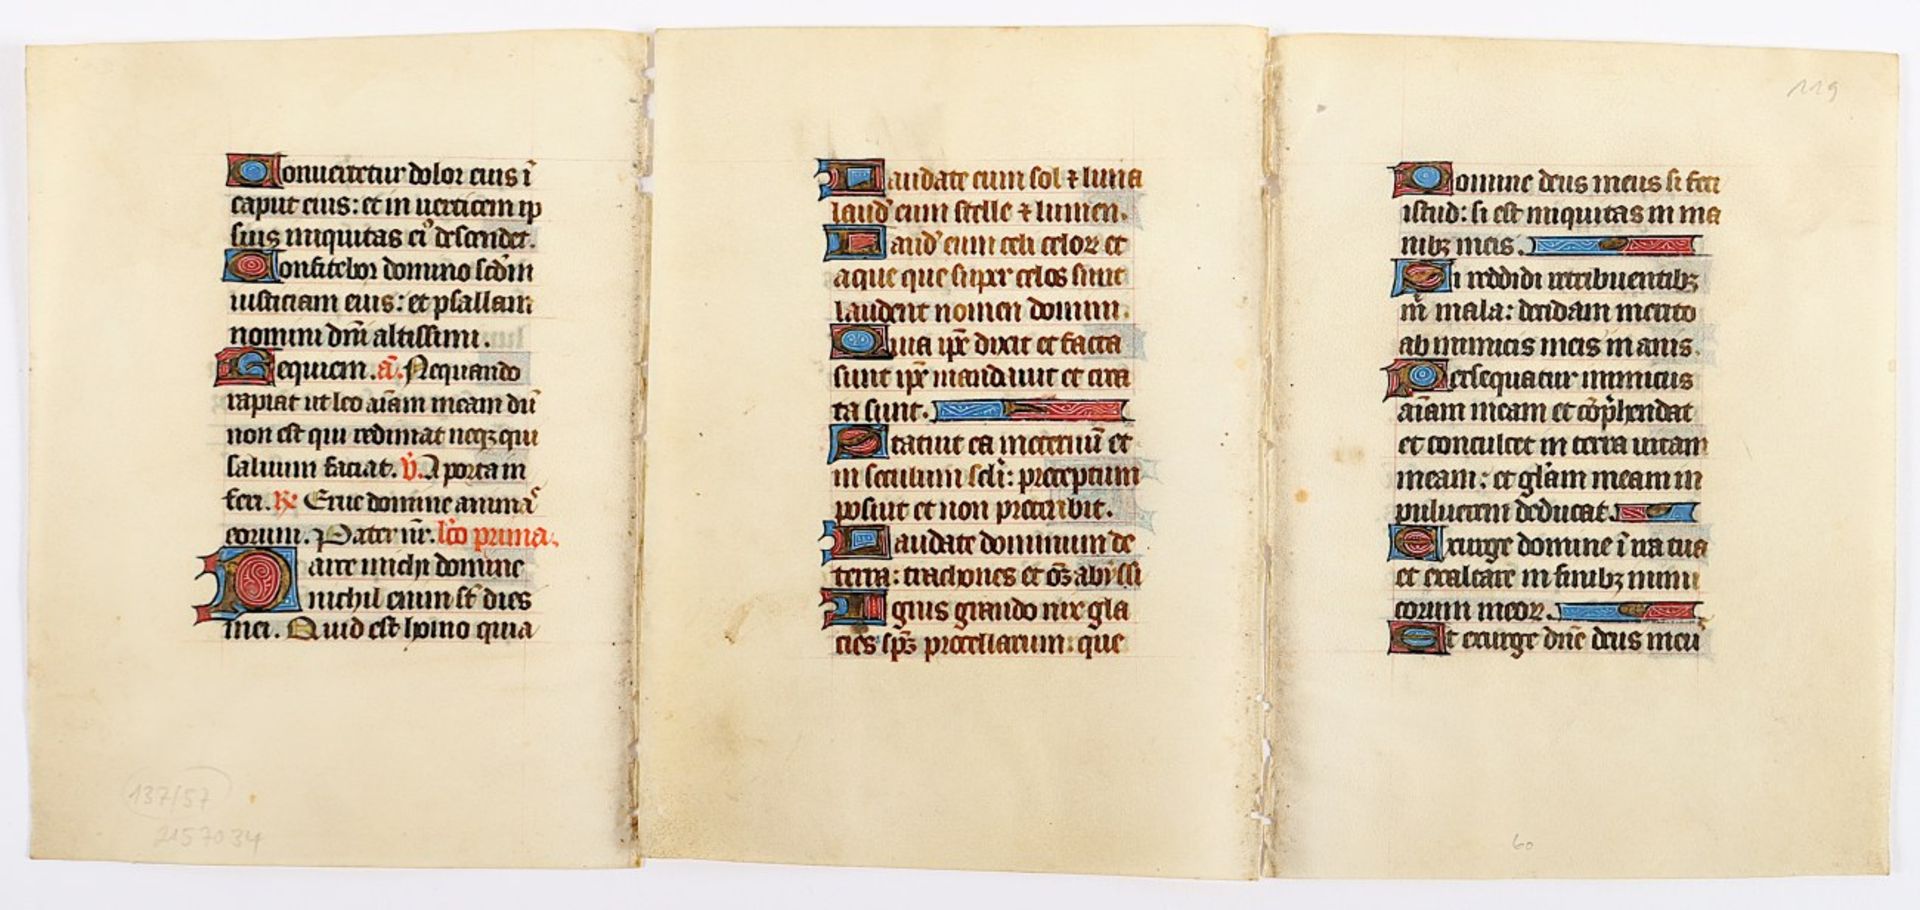 Conuertetur dolor eius ĩ
caput eius: et in uerticem ip
sius iniquitas ei᾽ descendet.
Confitebor domino scd̃m
iusticiam eius: et psallam
nomini dñi altissimi.
Requiem. ã. Nequando
rapiat ut leo aĩam meam dũ
non est qui redimat neqꝫ qui
saluum faciat. v̾. A porta in
feri. ℞ Erue domine animã
eorum. Pater nr̃. lc̃o prima.
Parce michi domine
nichil enim st̃ dies
mei. Quid est homo quia
137/57
2157034
Laudate eum sol ⁊ luna
laud᾽ eum stelle ⁊ lumen.
Laud᾽ eum celi celoꝝ et
aque que super celos sunt
laudent nomen domini.
Quia ip̃e dixit et facta
sunt ip̃e mandauit et crea
ta sunt.
Statuit ea in eternũ et
in seculum scl̃i: preceptum
posuit et non preteribit.
Laudate dominum de
terra: trachones et om̃s abyssi
Ignis grando nix gla
cies sp̃s procellarum: que
119
Domine deus meus si feci
istud: si est iniquitas in ma
nibꝫ meis.
Si reddidi retribuentibꝫ
m̃ mala: decidam merito
ab inimicis meis inanis.
Persequatur inimicus
aĩam meam et cõp̃hendat
et conculcet in terra uitam
meam: et gl̃am meam in
puluerem deducat.
Exurge domine ĩ ira tua
et exaltare in finibꝫ inimi
corum meoꝝ.
Et exurge dñe deus meũ
60